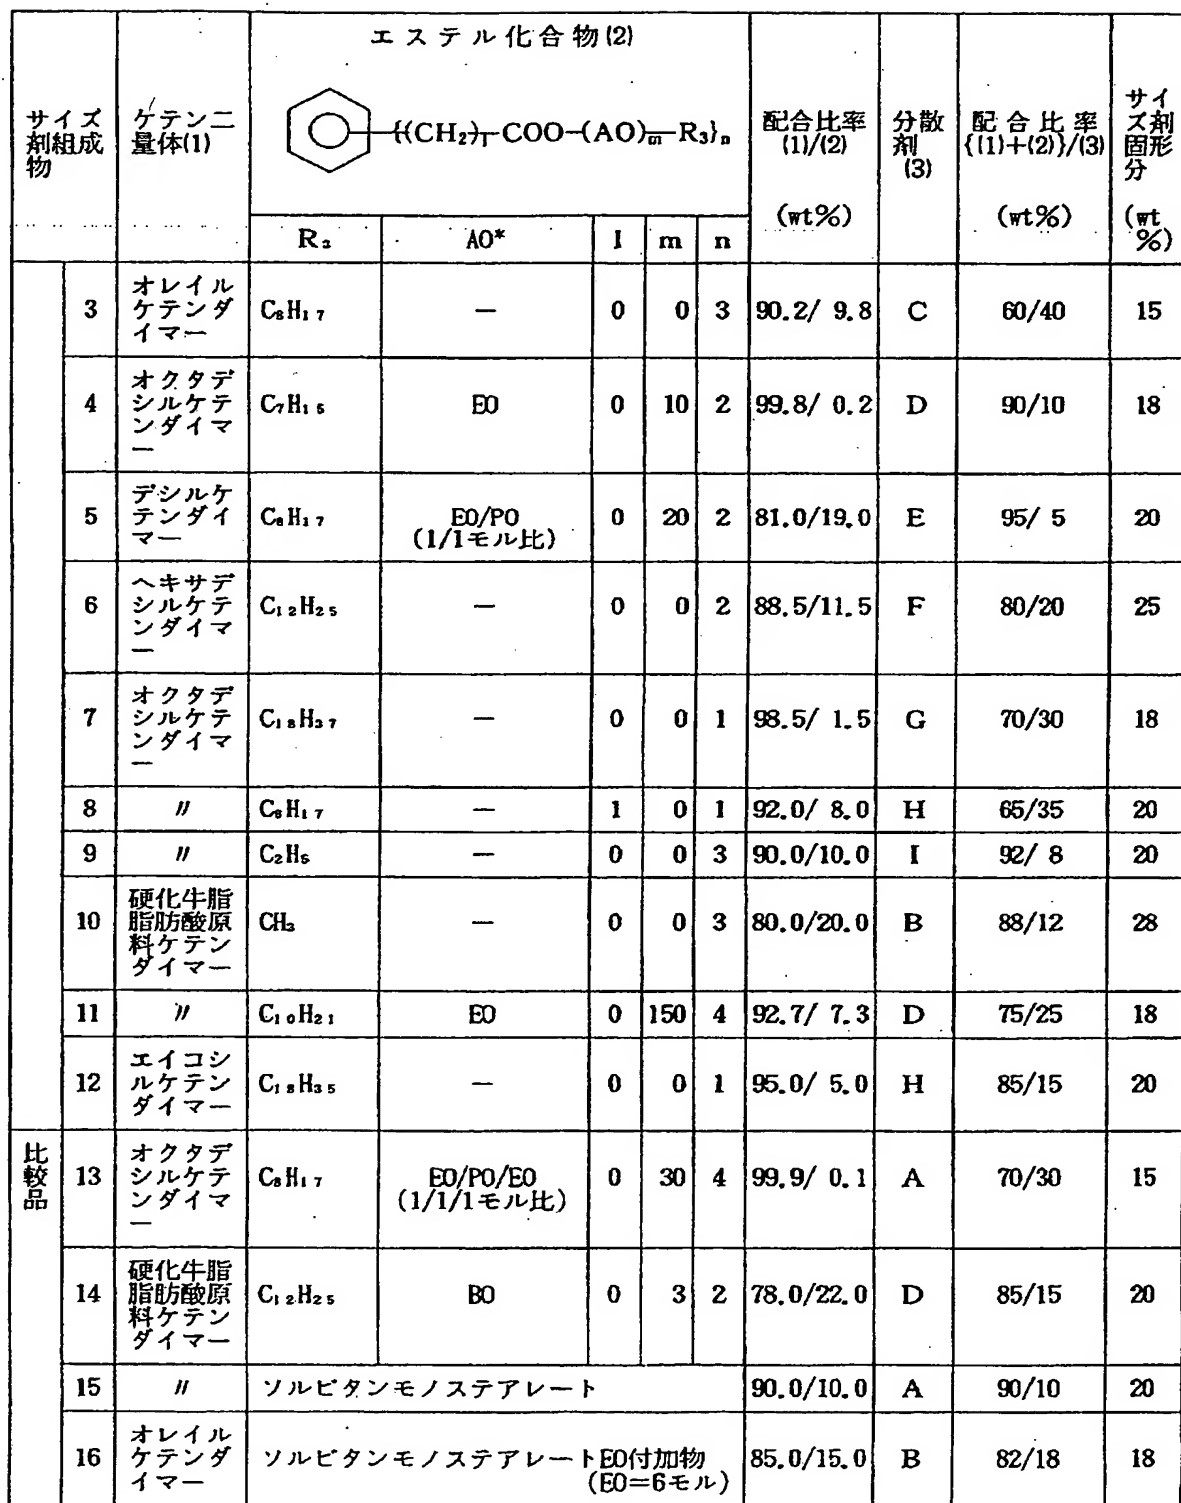 エステル化合物(2)
サイズ剤組成物
ケテン二量体(1)
{(CH₂)l-COO-(AO)m-R₃}n
配合比率 (1)/(2) (wt%)
分散剤 (3)
配合比率 {(1)+(2)}/(3) (wt%)
サイズ剤固形分 (wt%)
R₃ AO* l m n
3 オレイルケテンダイマー C₈H₁₇ — 0 0 3 90.2/ 9.8 C 60/40 15
4 オクタデシルケテンダイマー C₇H₁₅ EO 0 10 2 99.8/ 0.2 D 90/10 18
5 デシルケテンダイマー C₈H₁₇ EO/PO (1/1モル比) 0 20 2 81.0/19.0 E 95/ 5 20
6 ヘキサデシルケテンダイマー C₁₂H₂₅ — 0 0 2 88.5/11.5 F 80/20 25
7 オクタデシルケテンダイマー C₁₈H₃₇ — 0 0 1 98.5/ 1.5 G 70/30 18
8 〃 C₈H₁₇ — 1 0 1 92.0/ 8.0 H 65/35 20
9 〃 C₂H₅ — 0 0 3 90.0/10.0 I 92/ 8 20
10 硬化牛脂脂肪酸原料ケテンダイマー CH₃ — 0 0 3 80.0/20.0 B 88/12 28
11 〃 C₁₀H₂₁ EO 0 150 4 92.7/ 7.3 D 75/25 18
12 エイコシルケテンダイマー C₁₈H₃₅ — 0 0 1 95.0/ 5.0 H 85/15 20
比較品
13 オクタデシルケテンダイマー C₈H₁₇ EO/PO/EO (1/1/1モル比) 0 30 4 99.9/ 0.1 A 70/30 15
14 硬化牛脂脂肪酸原料ケテンダイマー C₁₂H₂₅ BO 0 3 2 78.0/22.0 D 85/15 20
15 〃 ソルビタンモノステアレート 90.0/10.0 A 90/10 20
16 オレイルケテンダイマー ソルビタンモノステアレートEO付加物 (EO=6モル) 85.0/15.0 B 82/18 18